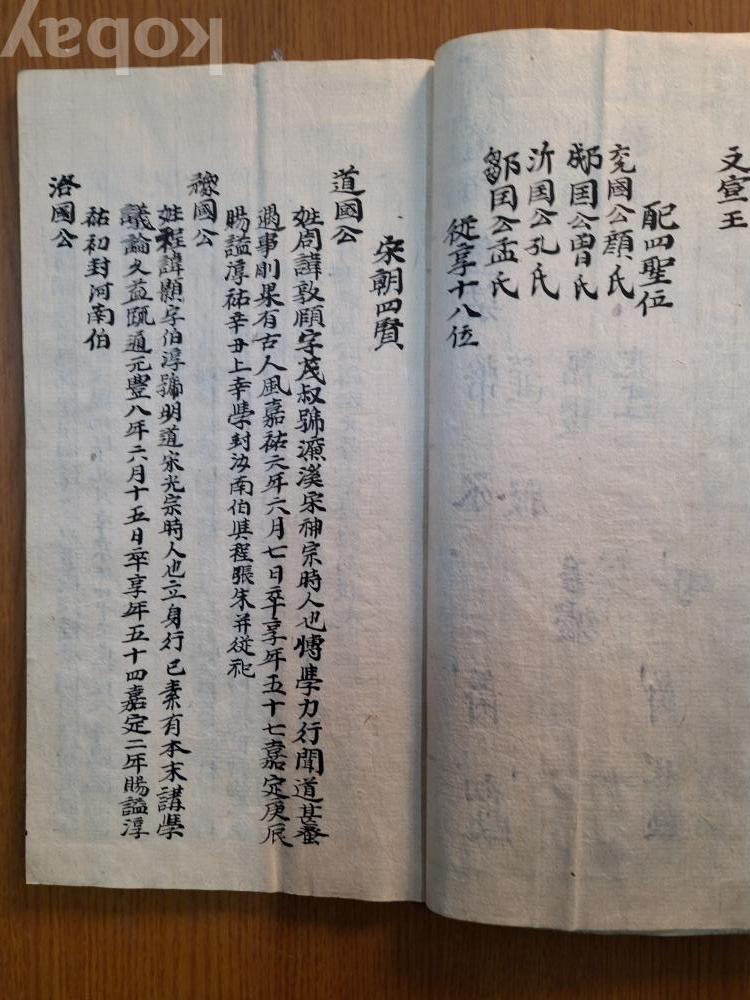 文宣王
配四聖位
兗國公顔氏
郕国公曽氏
沂国公孔氏
鄒国公孟氏
從享十八位
宋朝四賢
道國公
姓周諱敦頤字茂叔號濂溪宋神宗時人也博學力行聞道甚蚤
遇事剛果有古人風嘉祐六年六月七日卒享年五十七嘉定庚辰
賜諡淳祐辛丑上幸學封汝南伯與程張朱幷從祀
豫國公
姓程諱顥字伯淳號明道宋光宗時人也立身行已素有本末講學
議論久益既通元豊八年六月十五日卒享年五十四嘉定二年賜諡淳
祐初封河南伯
洛國公
kobay